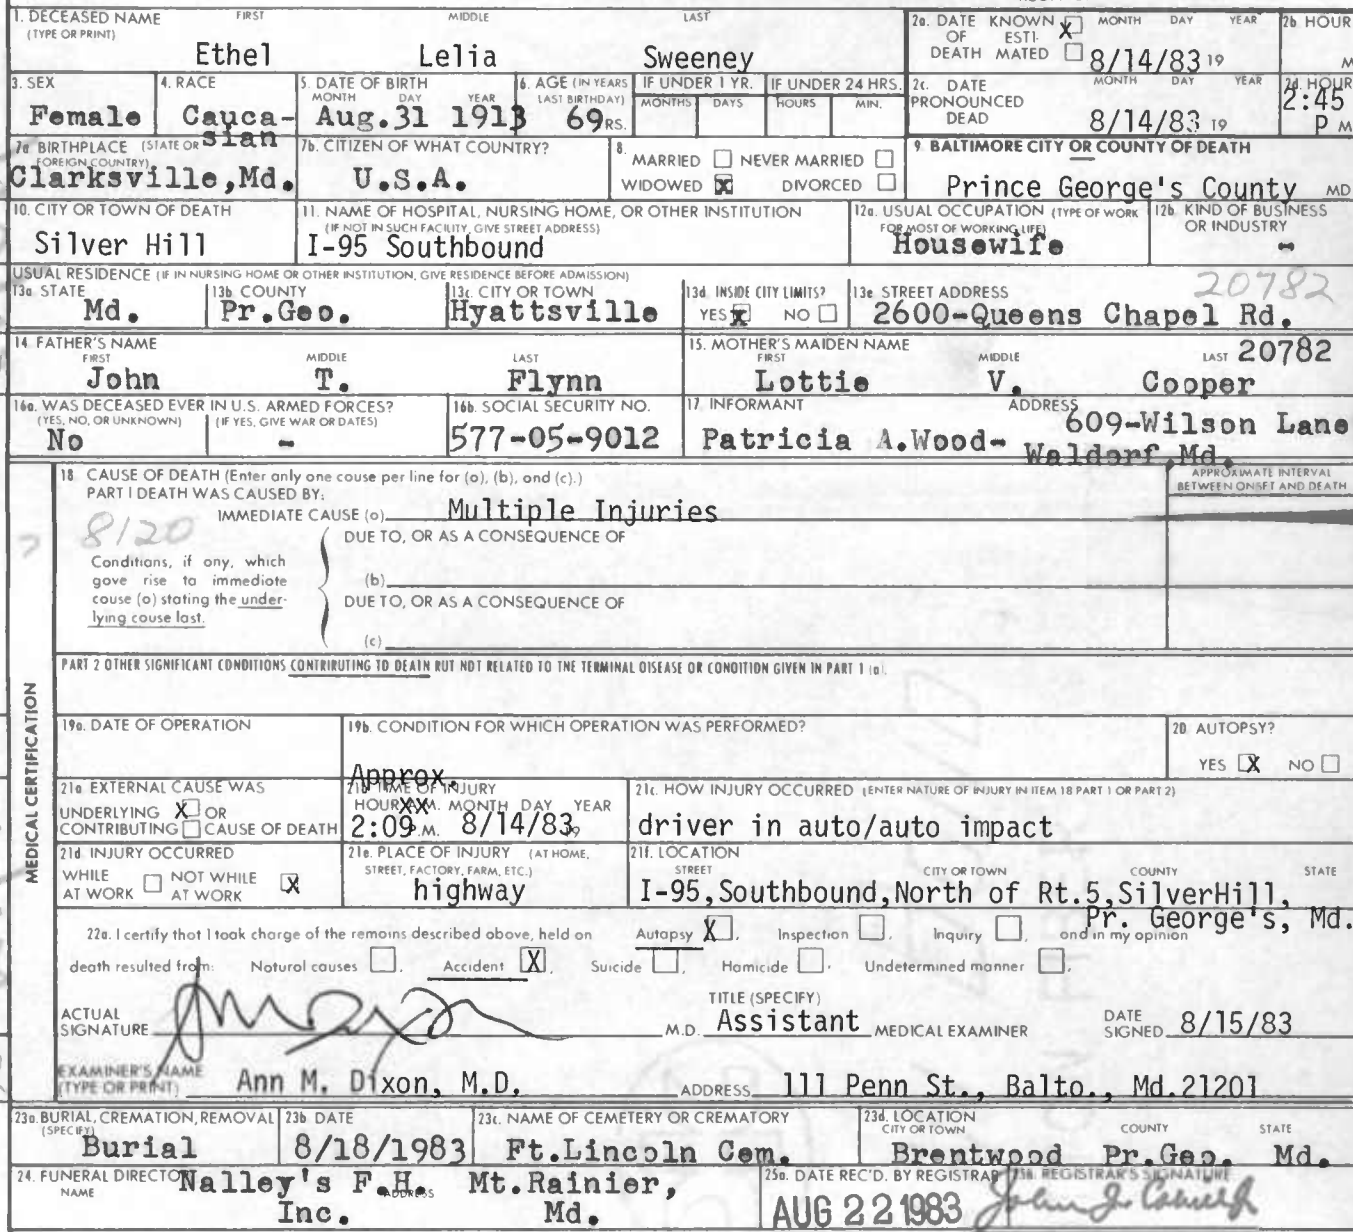 1. DECEASED NAME FIRST MIDDLE LAST
(TYPE OR PRINT)
Ethel Lelia Sweeney
2a. DATE KNOWN X MONTH DAY YEAR
OF ESTI-
DEATH MATED 8/14/83 19
2b HOUR
M
3. SEX
Female
4. RACE
Cauca-
sian
5. DATE OF BIRTH
MONTH DAY YEAR
Aug.31 1913
6. AGE (IN YEARS
LAST BIRTHDAY)
69 RS.
IF UNDER 1 YR.
MONTHS DAYS
IF UNDER 24 HRS.
HOURS MIN.
2c. DATE MONTH DAY YEAR
PRONOUNCED
DEAD 8/14/83 19
2d. HOUR
2:45
P M
7a BIRTHPLACE (STATE OR
FOREIGN COUNTRY)
Clarksville,Md.
7b. CITIZEN OF WHAT COUNTRY?
U.S.A.
8.
MARRIED NEVER MARRIED
WIDOWED X DIVORCED
9. BALTIMORE CITY OR COUNTY OF DEATH
Prince George's County MD
10. CITY OR TOWN OF DEATH
Silver Hill
11. NAME OF HOSPITAL, NURSING HOME, OR OTHER INSTITUTION
(IF NOT IN SUCH FACILITY, GIVE STREET ADDRESS)
I-95 Southbound
12a. USUAL OCCUPATION (TYPE OF WORK
FOR MOST OF WORKING LIFE)
Housewife
12b. KIND OF BUSINESS
OR INDUSTRY
-
USUAL RESIDENCE (IF IN NURSING HOME OR OTHER INSTITUTION, GIVE RESIDENCE BEFORE ADMISSION)
13a STATE
Md.
13b. COUNTY
Pr.Geo.
13c. CITY OR TOWN
Hyattsville
13d. INSIDE CITY LIMITS?
YES X NO
13e STREET ADDRESS 20782
2600-Queens Chapel Rd.
14. FATHER'S NAME
FIRST MIDDLE LAST
John T. Flynn
15. MOTHER'S MAIDEN NAME
FIRST MIDDLE LAST 20782
Lottie V. Cooper
16a. WAS DECEASED EVER IN U.S. ARMED FORCES?
(YES, NO, OR UNKNOWN) (IF YES, GIVE WAR OR DATES)
No -
16b. SOCIAL SECURITY NO.
577-05-9012
17. INFORMANT ADDRESS
Patricia A.Wood- 609-Wilson Lane
Waldorf,Md.
MEDICAL CERTIFICATION
18 CAUSE OF DEATH (Enter only one cause per line for (a), (b), and (c).)
PART I DEATH WAS CAUSED BY:
IMMEDIATE CAUSE (a) Multiple Injuries
APPROXIMATE INTERVAL
BETWEEN ONSET AND DEATH
? 8120
DUE TO, OR AS A CONSEQUENCE OF
Conditions, if any, which
gave rise to immediate
cause (a) stating the under-
lying cause last.
(b)
DUE TO, OR AS A CONSEQUENCE OF
(c)
PART 2 OTHER SIGNIFICANT CONDITIONS CONTRIBUTING TO DEATH BUT NOT RELATED TO THE TERMINAL DISEASE OR CONDITION GIVEN IN PART 1 (a).
19a. DATE OF OPERATION
19b. CONDITION FOR WHICH OPERATION WAS PERFORMED?
20. AUTOPSY?
YES X NO
21a EXTERNAL CAUSE WAS
UNDERLYING X OR
CONTRIBUTING CAUSE OF DEATH
Approx.
21b TIME OF INJURY
HOUR XXM. MONTH DAY YEAR
2:09 P.M. 8/14/83 19
21c. HOW INJURY OCCURRED (ENTER NATURE OF INJURY IN ITEM 18 PART 1 OR PART 2)
driver in auto/auto impact
21d INJURY OCCURRED
WHILE AT WORK NOT WHILE AT WORK X
21e. PLACE OF INJURY (AT HOME,
STREET, FACTORY, FARM, ETC.)
highway
21f. LOCATION
STREET CITY OR TOWN COUNTY STATE
I-95,Southbound,North of Rt.5,SilverHill,
Pr. George's, Md.
22a. I certify that I took charge of the remains described above, held on Autopsy X, Inspection, Inquiry, and in my opinion
death resulted from: Natural causes, Accident X, Suicide, Homicide, Undetermined manner.
ACTUAL
SIGNATURE M.D.
TITLE (SPECIFY)
Assistant MEDICAL EXAMINER
DATE
SIGNED 8/15/83
EXAMINER'S NAME
(TYPE OR PRINT) Ann M. Dixon, M.D. ADDRESS 111 Penn St., Balto., Md.21201
23a. BURIAL, CREMATION, REMOVAL
(SPECIFY)
Burial
23b. DATE
8/18/1983
23c. NAME OF CEMETERY OR CREMATORY
Ft.Lincoln Cem.
23d. LOCATION
CITY OR TOWN COUNTY STATE
Brentwood Pr.Geo. Md.
24. FUNERAL DIRECTOR
NAME ADDRESS
Nalley's F.H. Mt.Rainier,
Inc. Md.
25a. DATE REC'D. BY REGISTRAR
AUG 22 1983
25b. REGISTRAR'S SIGNATURE